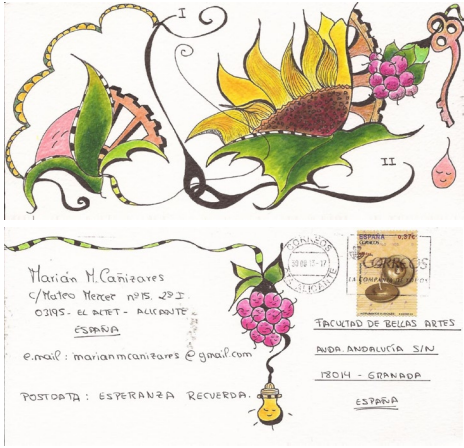 I
II
Marián M. Cañizares
C/ Mateo Mercer nº 15. 2º I
03195 - EL ALTET - ALICANTE
ESPAÑA
e.mail: marianmcanizares@gmail.com
POSTDATA: ESPERANZA RECUERDA.
CORREOS
ALICANTE
ESPAÑA 0,37€
CORREOS
CORREOS
FACULTAD DE BELLAS ARTES
AVDA. ANDALUCÍA S/N
18014 - GRANADA
ESPAÑA